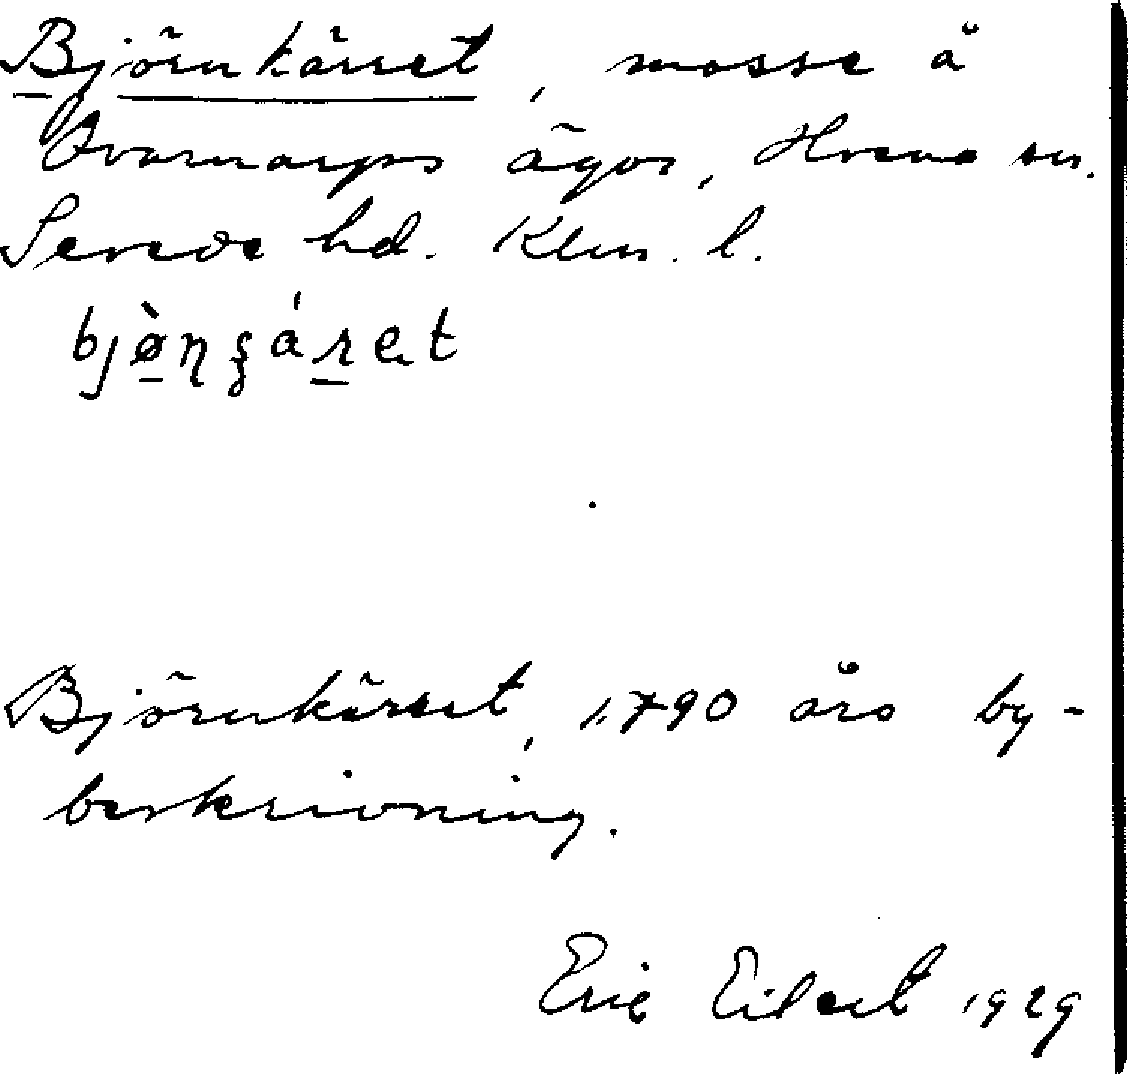 Björnkärret, mosse å
Qvarnarps ägor, Hvena sn.
Sevede hd. Klm. l.
bjø̀ɳʂáret
Björnkärret, 1790 års by-
beskrivning.
Eric Eilert 1929